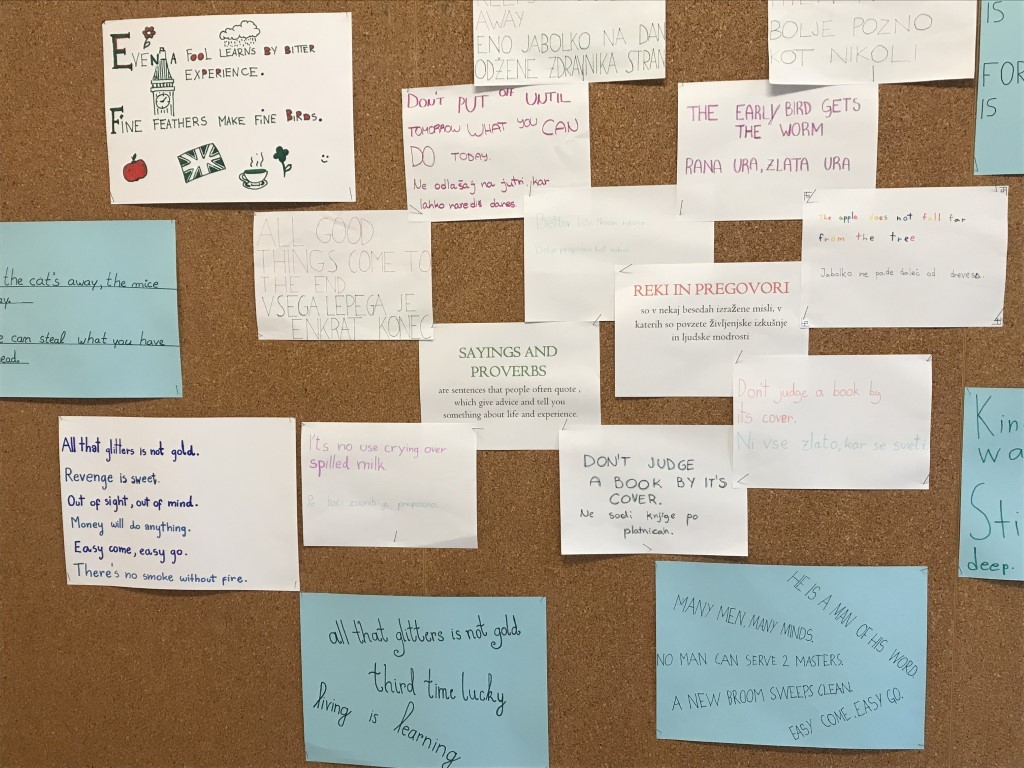 EVEN A FOOL LEARNS BY BITTER
EXPERIENCE.
FINE FEATHERS MAKE FINE BIRDS.
AWAY
ENO JABOLKO NA DAN
ODŽENE ZDRAVNIKA STRAN
BOLJE POZNO
KOT NIKOLI
IS
FOR
IS
DON'T PUT Off UNTIL
TOMORROW WHAT YOU CAN
DO TODAY.
Ne odlašaj na jutri, kar
lahko narediš danes.
THE EARLY BIRD GETS
THE WORM
RANA URA, ZLATA URA
the cat's away, the mice
can steal what you have
ALL GOOD
THINGS COME TO
THE END
VSEGA LEPEGA JE
ENKRAT KONEC
Better
The apple does not fall far
from the tree
Jabolko ne pade daleč od drevesa.
REKI IN PREGOVORI
so v nekaj besedah izražene misli, v
katerih so povzete življenjske izkušnje
in ljudske modrosti
SAYINGS AND
PROVERBS
are sentences that people often quote ,
which give advice and tell you
something about life and experience.
Don't judge a book by
it's cover.
Ni vse zlato, kar se sveti
All that glitters is not gold.
Revenge is sweet.
Out of sight, out of mind.
Money will do anything.
Easy come, easy go.
There's no smoke without fire.
It's no use crying over
spilled milk
DON'T JUDGE
A BOOK BY IT'S
COVER.
Ne sodi knjige po
platnicah.
Kin
wa
Sti
deep.
all that glitters is not gold
third time lucky
living is learning
HE IS A MAN OF HIS WORD.
MANY MEN, MANY MINDS.
NO MAN CAN SERVE 2 MASTERS.
A NEW BROOM SWEEPS CLEAN.
EASY COME, EASY GO.